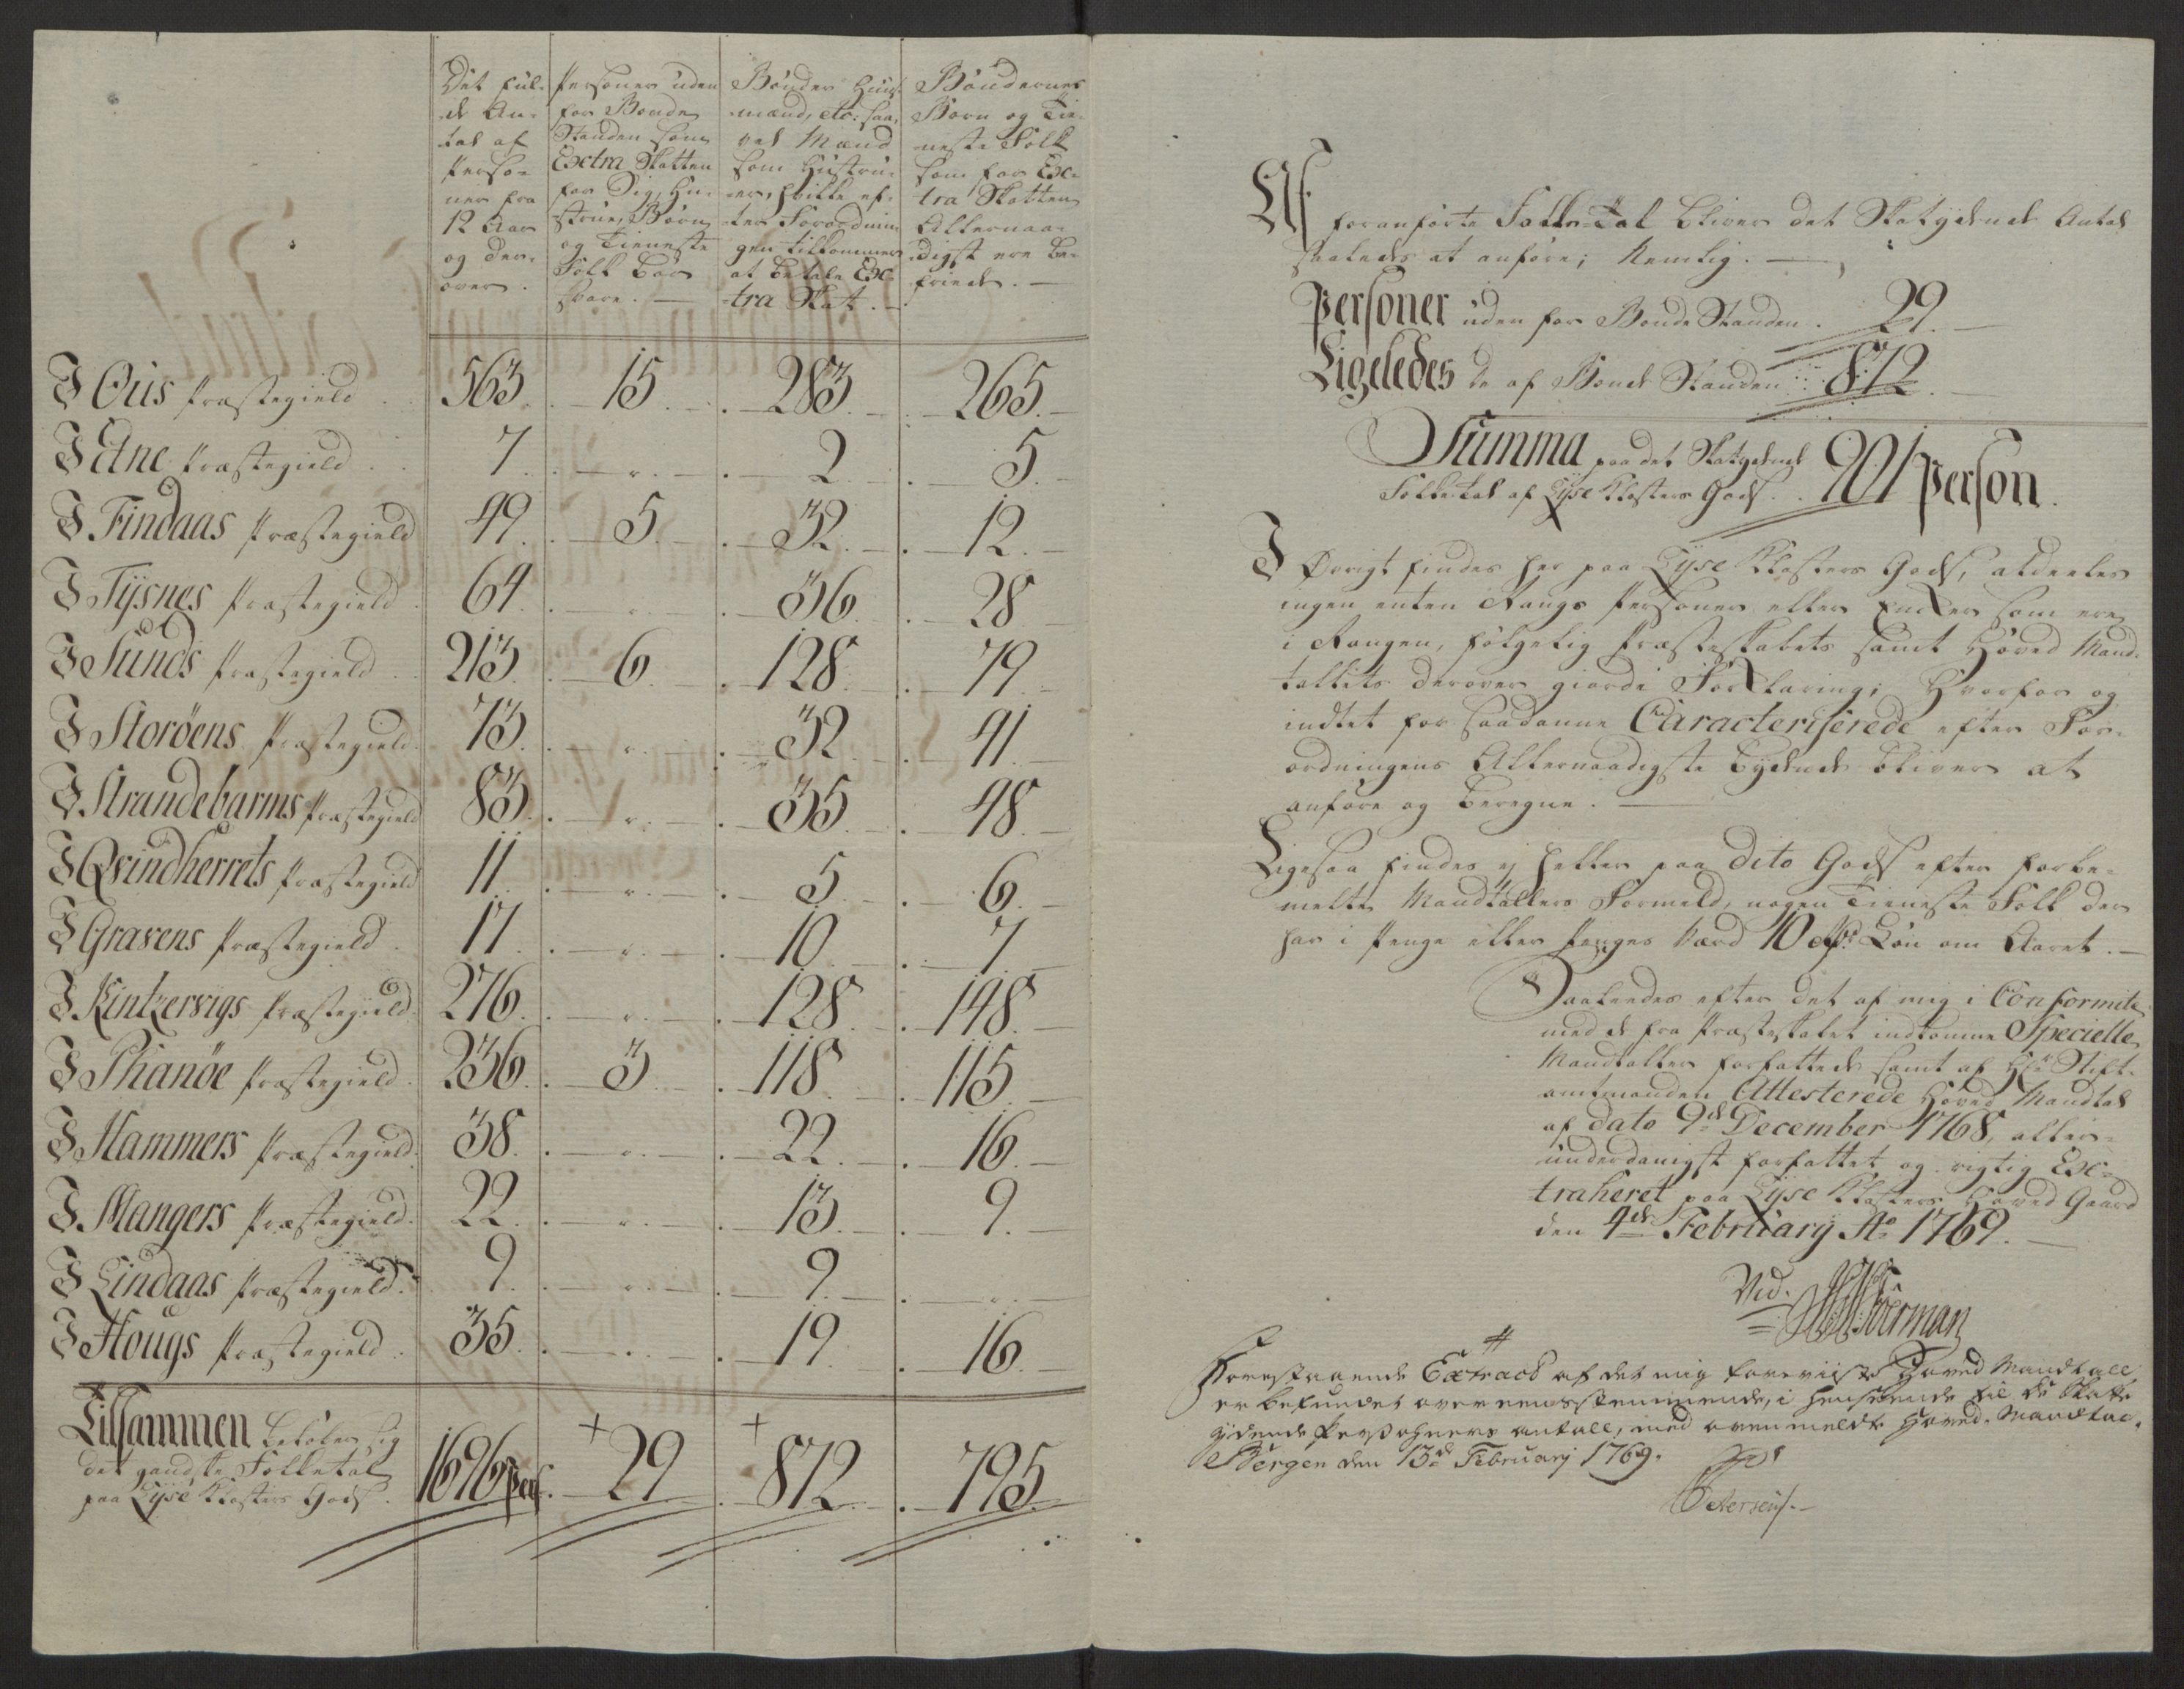 Det ful- Personer uden Bønder Huus- Bøndernes
de An- for Bonde mænd, etc: saa- Børn og Tie-
tal af Standen som vel Mænd neste Folk
Perso- Extra Skatten som Hustru- som for Ex-
ner fra for Sig, Hu- er, hvilke ef- tra Skatten
12 Aar strue, Børn ter Forordnin- Allernaa-
og der- og Tieneste gen tilkommer digst ere be-
over. Folk bør at betale Ex- friede. —
svare. — tra Skat. —
I Ous Præstegield . . 563. 15. 283. 265.
I Etne Præstegield . . 7. " 2 5.
I Findaas Præstegield 49. 5. 32. 12.
I Tysnes Præstegield . 64. " 36. 28
I Sunds Præstegield . . 213. 6. 128. 79.
I Storøens Præstegield. 73. " 32. 41.
I Strandebarms Præstegield 83. " 35. 48.
I Qvindherrets Præstegield 11. " 5. 6.
I Gravens Præstegield . 17. " 10. 7
I Kintzervigs Præstegield. 276. " 128. 148.
I Phanøe Præstegield. 236. 3. 118. 115.
I Hammers Præstegield. 38. " 22. 16.
I Mangers Præstegield. 22. " 13. 9.
I Lindaas Præstegield. 9. " 9. "
I Hougs Præstegield . 35. " 19. 16.
Tilsammen beløber sig
det gandske Folketal
paa Lyse Klosters Gods. 1696 pers. + 29 + 872. 795.
Af
foranførte Folke-Tal bliver det Skatydende Antal
saaledes at anføre; Nemlig. —
Personer uden for Bonde Standen . 29. —
Ligeledes de af Bonde Standen . . 872. —
Summa paa det Skatydende
Folketal af Lyse Klosters Gods. . 901 Person.
I Øvrigt findes her paa Lyse Klosters Gods, aldeeles
ingen enten Rangs Personer eller Encker som ere
i Rangen, følgelig Præsteskabets samt Hoved Mand-
tallets derover giorde Forklaring; Hvorfor og
indtet for saadanne Caracteriserede efter For-
ordningens Allernaadigste Bydende bliver at
anføre og beregne. —
Ligesaa findes ej heller paa dito Gods efter forbe-
melte Mandtallers Formeld, nogen Tieneste Folk der
har i Penge eller Penges Værd 10 Rdr. Løn om Aaret. —
Saaleedes efter det af mig i Conformite
med de fra Præsteskabet indkomne Specielle
Mandtaller forfattede samt af Hr. Stift-
amtmanden Attesterede Hoved Mandtal
af dato 9de December 1768, aller-
underdanigst forfattet og rigtig Ex-
traheret paa Lyse Klosters Hoved Gaard
den 4de February Ao 1769. —
Vid.
Forman
#
Forestaaende Extract af det mig foreviiste Hoved Mandtall
er befundet overeensstemmende, i henseende til de Skatte
ydende Persohners antall, med ovenmelte Hoved-Mandtal.
Bergen den 13de February 1769.
Petersen.